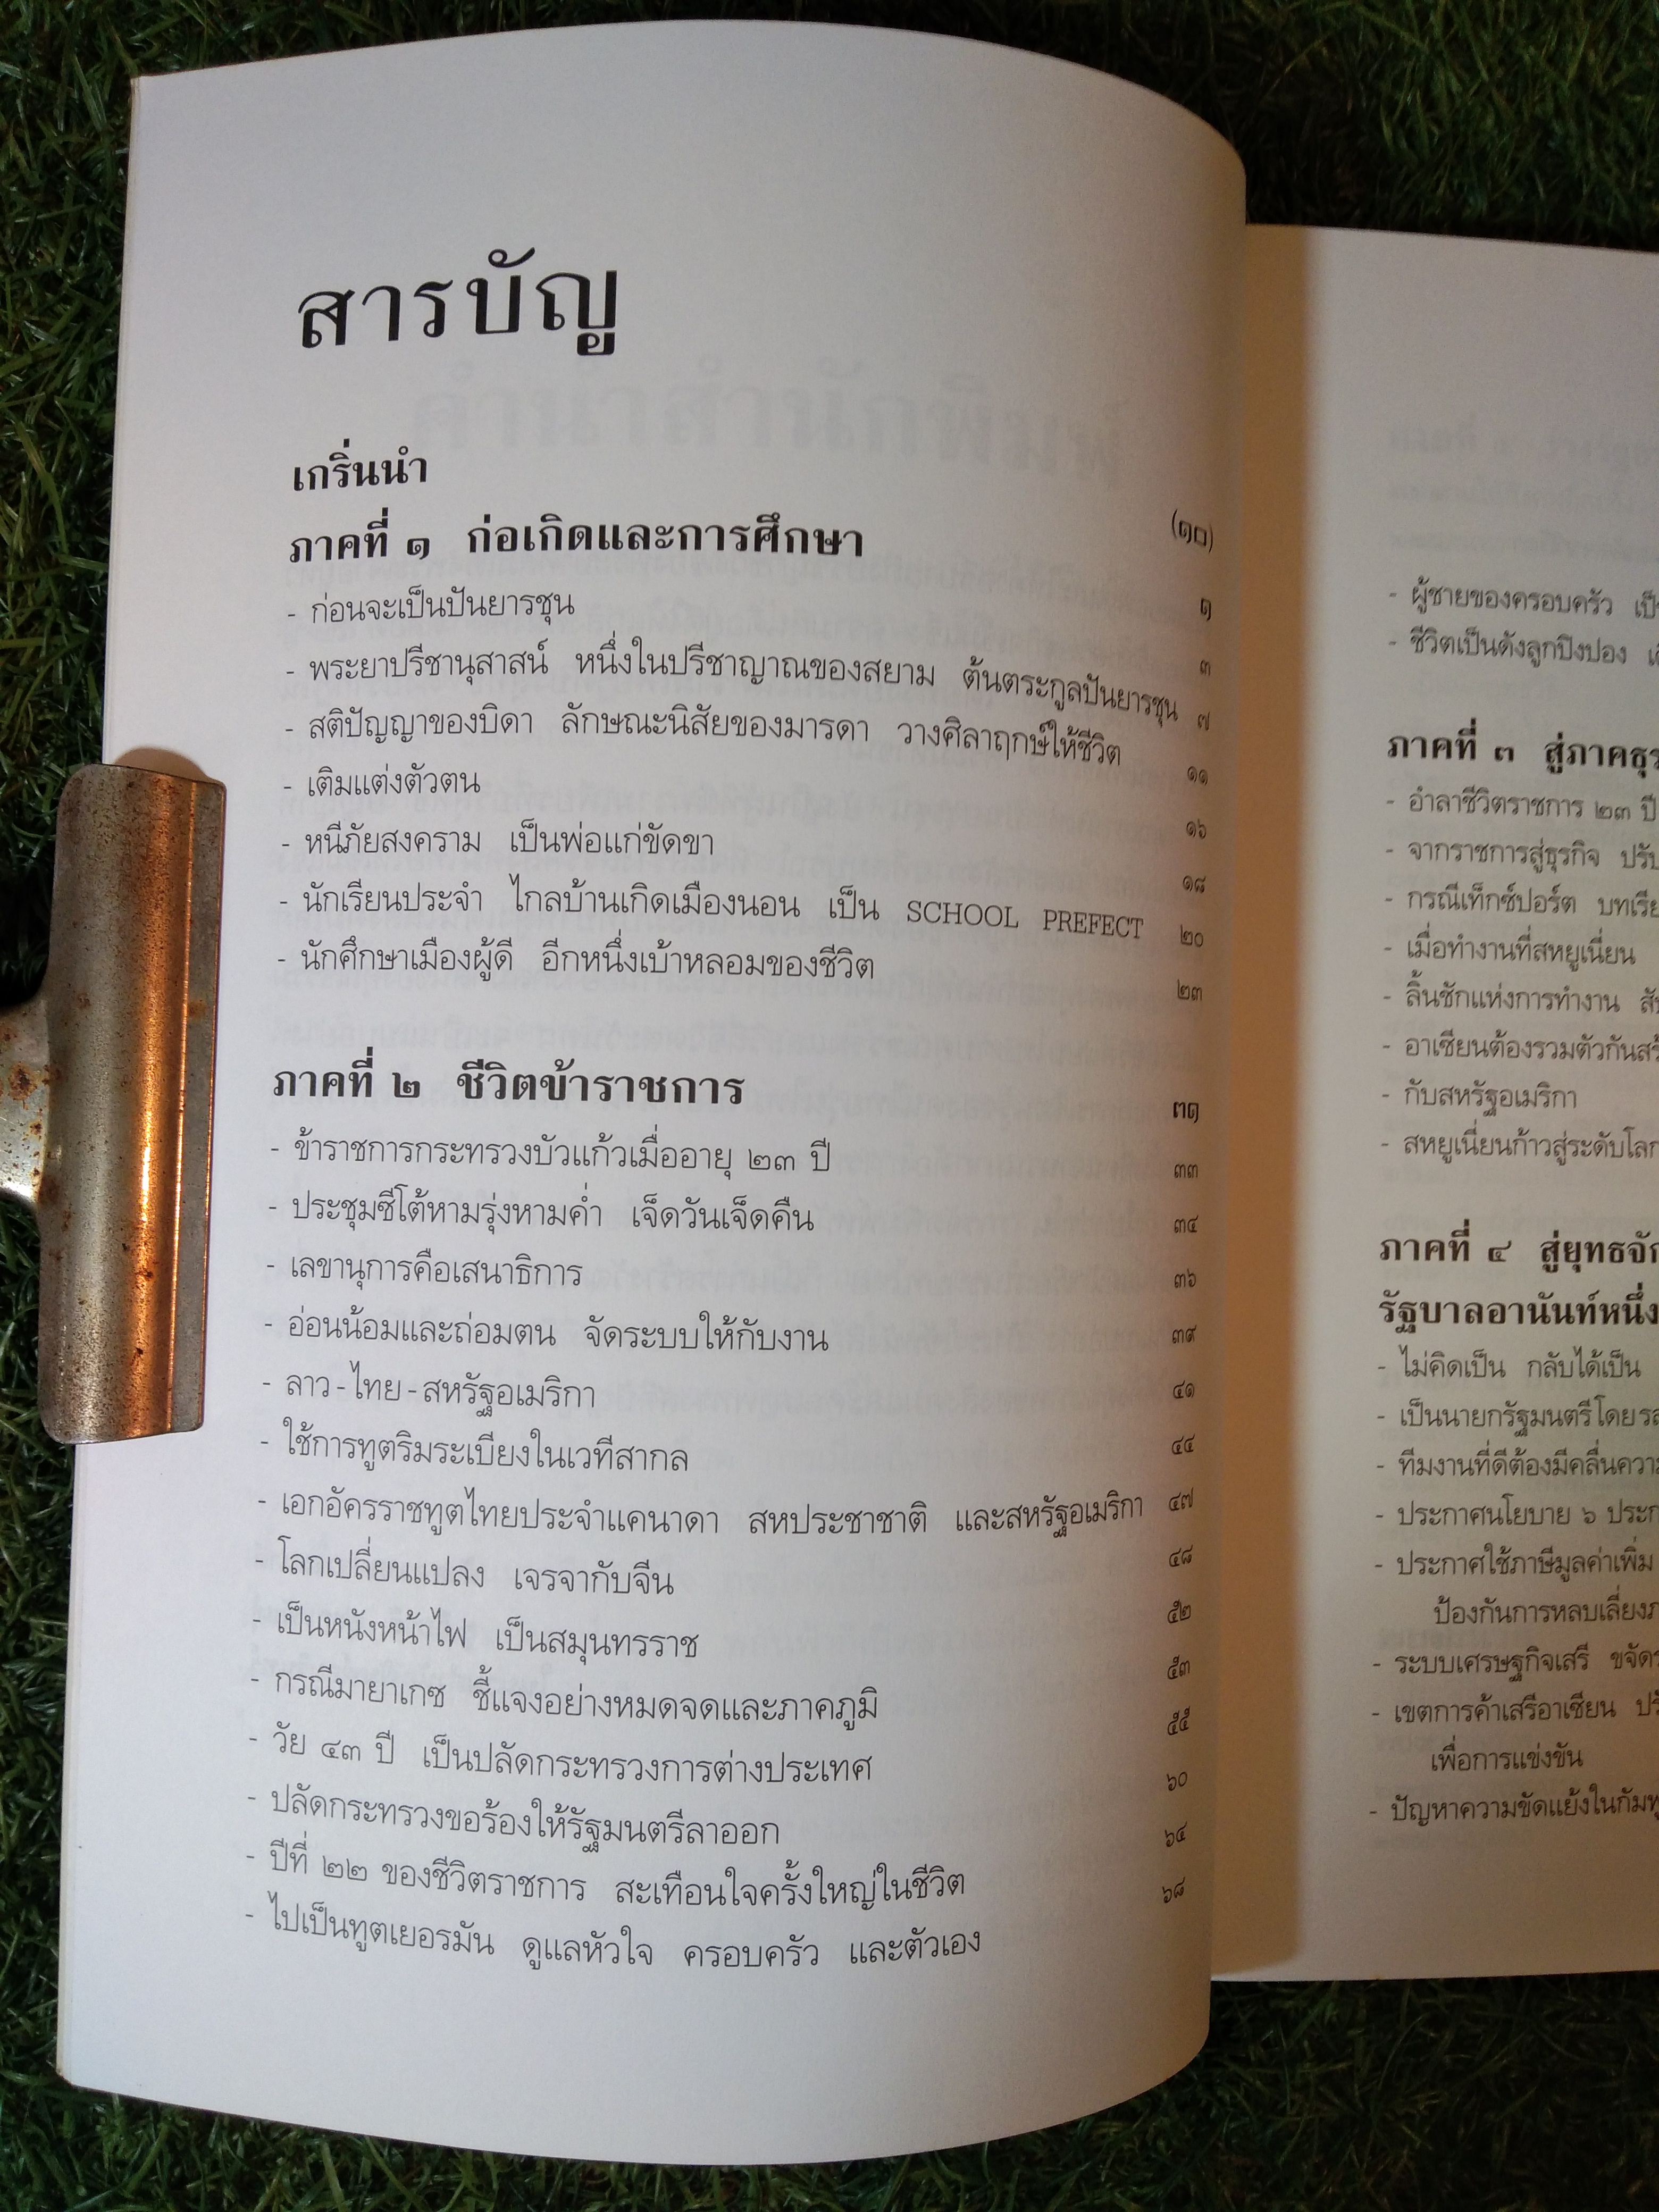 สารบัญ
เกริ่นนำ (๑๐)
ภาคที่ ๑ ก่อเกิดและการศึกษา ๑
- ก่อนจะเป็นปันยารชุน ๓
- พระยาปรีชานุสาสน์ หนึ่งในปรีชาญาณของสยาม ต้นตระกูลปันยารชุน ๗
- สติปัญญาของบิดา ลักษณะนิสัยของมารดา วางศิลาฤกษ์ให้ชีวิต ๑๑
- เติมแต่งตัวตน ๑๖
- หนีภัยสงคราม เป็นพ่อแก่ขัดขา ๑๘
- นักเรียนประจำ ไกลบ้านเกิดเมืองนอน เป็น SCHOOL PREFECT ๒๐
- นักศึกษาเมืองผู้ดี อีกหนึ่งเบ้าหลอมของชีวิต ๒๓
ภาคที่ ๒ ชีวิตข้าราชการ ๓๑
- ข้าราชการกระทรวงบัวแก้วเมื่ออายุ ๒๓ ปี ๓๓
- ประชุมซีโต้หามรุ่งหามค่ำ เจ็ดวันเจ็ดคืน ๓๔
- เลขานุการคือเสนาธิการ ๓๖
- อ่อนน้อมและถ่อมตน จัดระบบให้กับงาน ๓๙
- ลาว-ไทย-สหรัฐอเมริกา ๔๑
- ใช้การทูตริมระเบียงในเวทีสากล ๔๔
- เอกอัครราชทูตไทยประจำแคนาดา สหประชาชาติ และสหรัฐอเมริกา ๔๗
- โลกเปลี่ยนแปลง เจรจากับจีน ๔๘
- เป็นหนังหน้าไฟ เป็นสมุนทรราช ๕๒
- กรณีมายาเกซ ชี้แจงอย่างหมดจดและภาคภูมิ ๕๓
- วัย ๔๓ ปี เป็นปลัดกระทรวงการต่างประเทศ ๕๕
- ปลัดกระทรวงขอร้องให้รัฐมนตรีลาออก ๖๐
- ปีที่ ๒๒ ของชีวิตราชการ สะเทือนใจครั้งใหญ่ในชีวิต ๖๔
- ไปเป็นทูตเยอรมัน ดูแลหัวใจ ครอบครัว และตัวเอง ๖๘
- ผู้ชายของครอบครัว
- ชีวิตเป็นดังลูกปิงปอง
ภาคที่ ๓
- อำลาชีวิตราชการ ๒๓ ปี
- จากราชการสู่ธุรกิจ
- กรณีเท็กซ์ปอร์ต
- เมื่อทำงานที่สหยูเนี่ยน
- ลิ้นชักแห่งการทำงาน
- อาเซียนต้องรวมตัวกัน
- กับสหรัฐอเมริกา
- สหยูเนี่ยนก้าวสู่ระดับโลก
ภาคที่ ๔
รัฐบาลอานันท์หนึ่ง
- ไม่คิดเป็น กลับได้เป็น
- เป็นนายกรัฐมนตรีโดย
- ทีมงานที่ดีต้องมีคลื่น
- ประกาศนโยบาย ๖
- ประกาศใช้ภาษีมูลค่าเพิ่ม
ป้องกันการหลบเลี่ยง
- ระบบเศรษฐกิจเสรี
- เขตการค้าเสรีอาเซียน
เพื่อการแข่งขัน
- ปัญหาความขัดแย้งใน